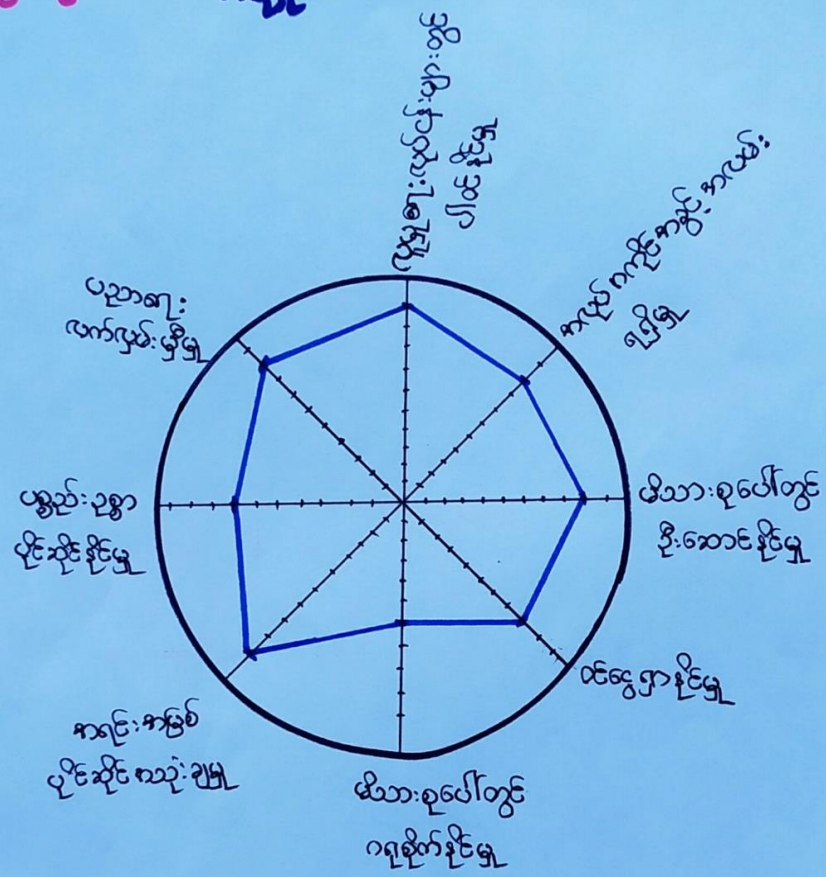 အလုပ်အကိုင်အခွင့်အလမ်း
ရရှိမှု
မိသားစုပေါ်တွင်
ဦးဆောင်နိုင်မှု
ဝင်ငွေရှာနိုင်မှု
မိသားစုပေါ်တွင်
ဂရုစိုက်နိုင်မှု
အရင်းအမြစ်
ပိုင်ဆိုင်အသုံးချမှု
ပစ္စည်းဥစ္စာ
ပိုင်ဆိုင်နိုင်မှု
ပညာရေး
လက်လှမ်းမှီမှု